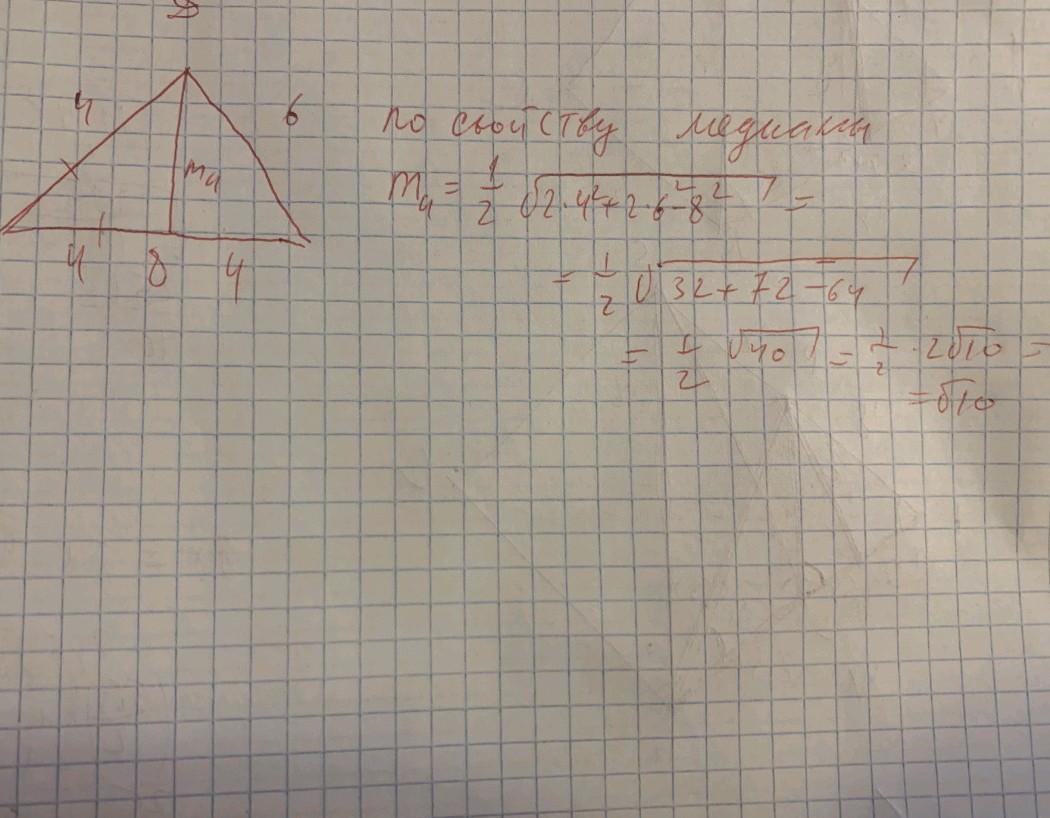 В
4
6
m_a
4 8 4
по свойству медианы
m_a = 1/2 √(2·4²+2·6²-8²) =
= 1/2 √(32+72-64)
= 1/2 √40 = 1/2 · 2√10 =
= √10